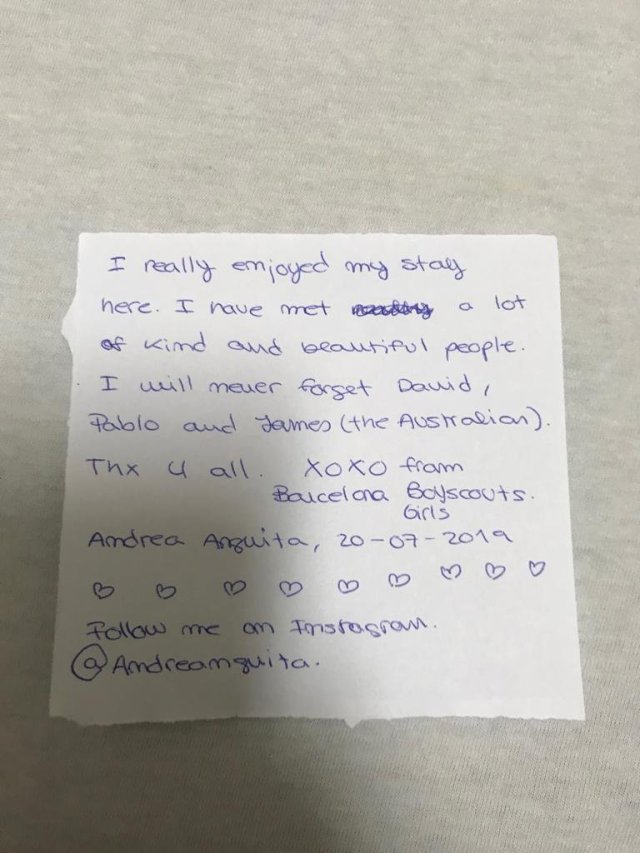 I really enjoyed my stay
here. I have met a lot
of kind and beautiful people.
I will never forget David,
Pablo and James (the Australian).
Thx u all. XOXO from
Barcelona Boyscouts.
Girls
Andrea Anguita, 20-07-2019
♡ ♡ ♡ ♡ ♡ ♡ ♡ ♡ ♡
Follow me on Instagram.
@Andreanguita.